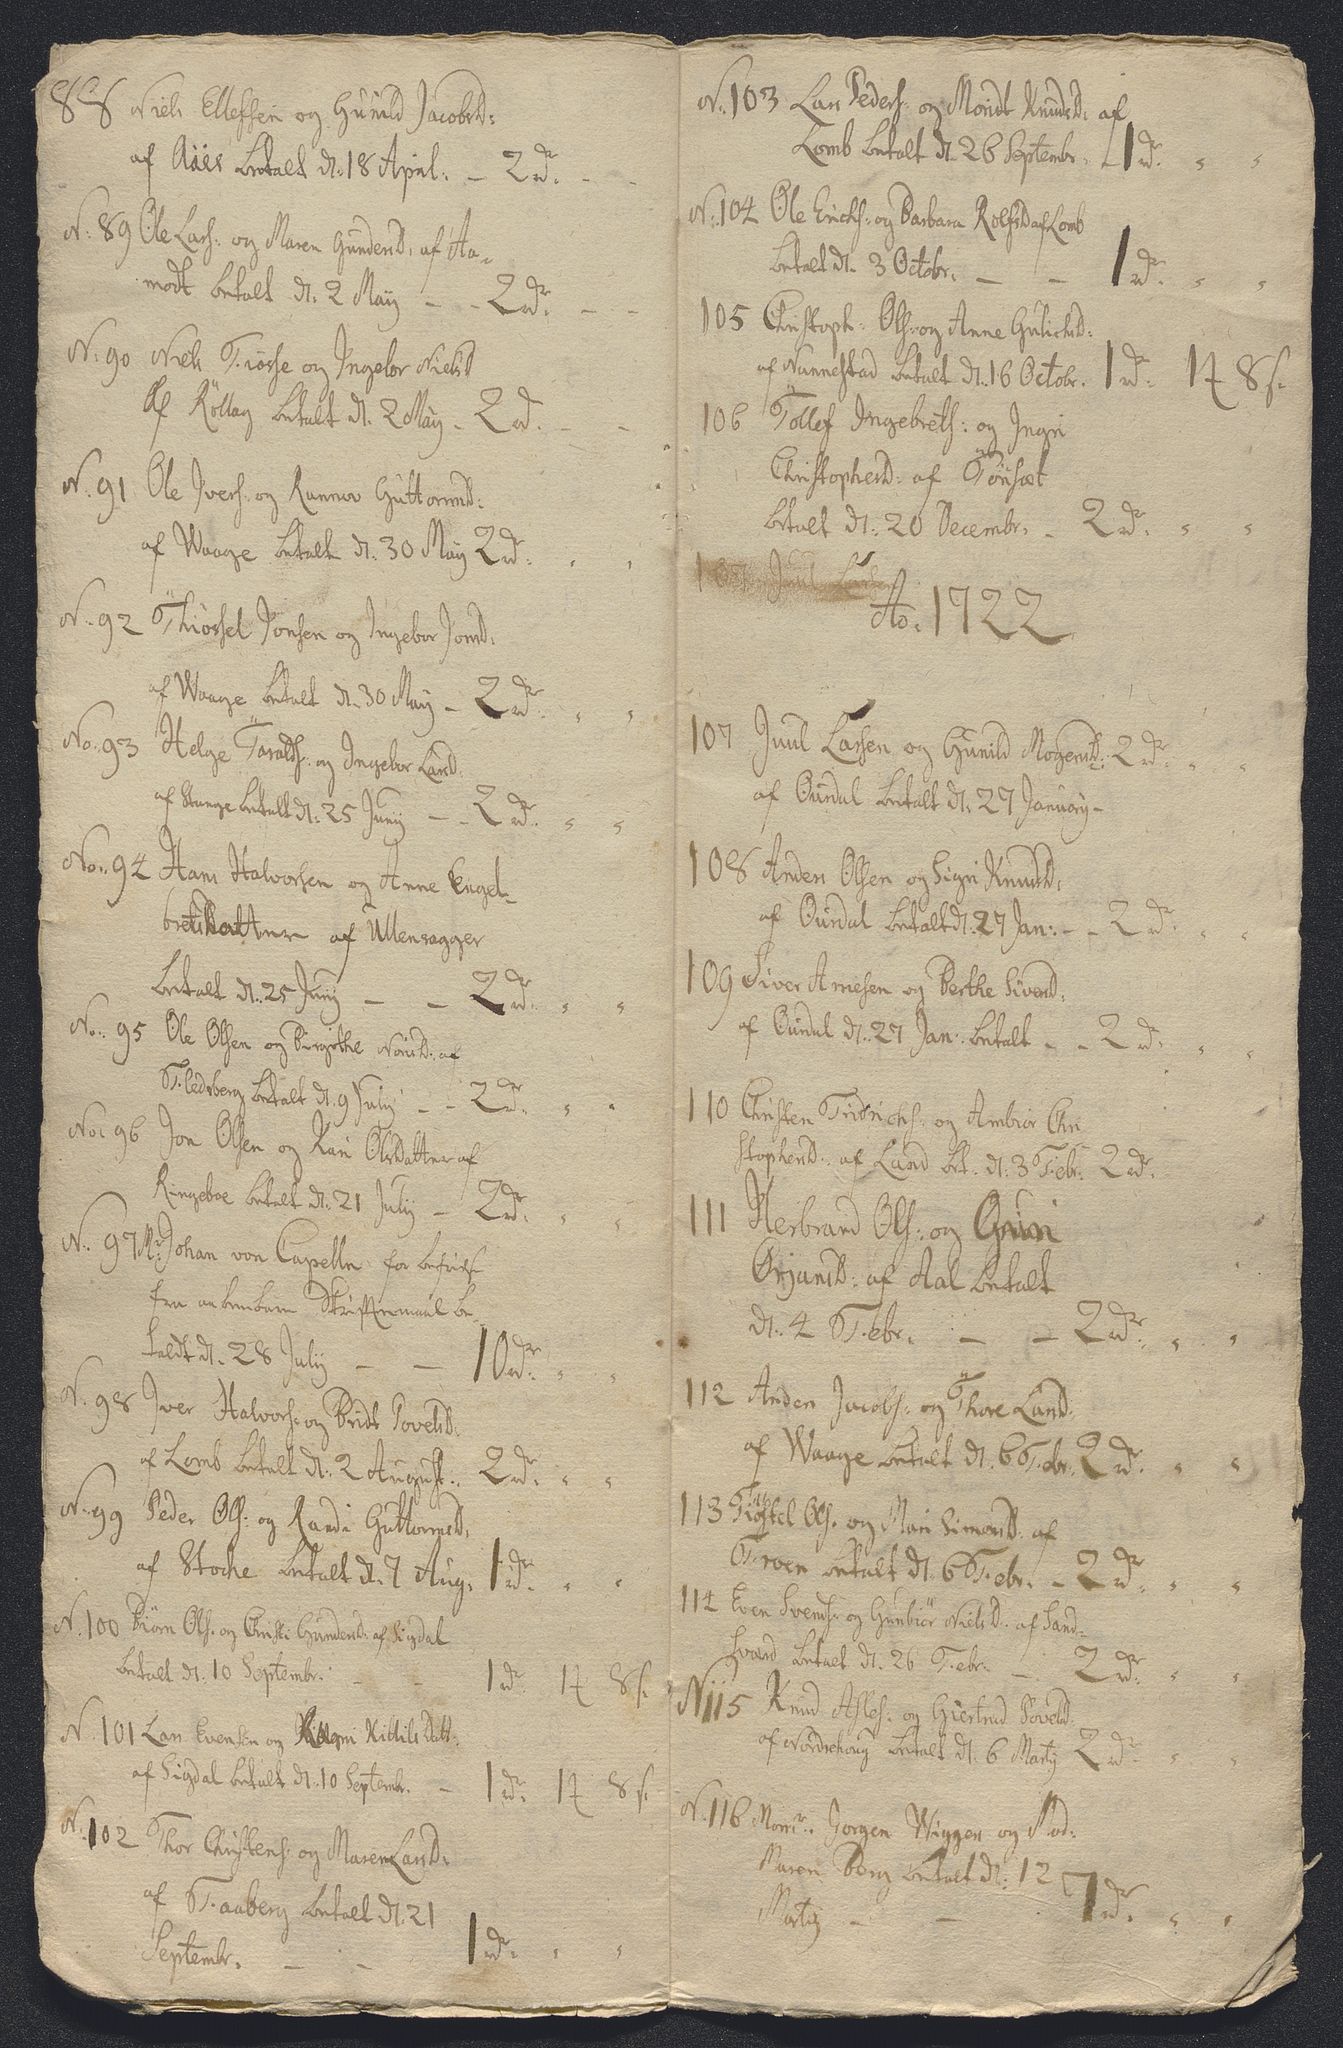 88 Niels Ellefsen og Gunild Jacobsd:
af Aaes betalt d. 18 April. - 2 rdr. - -
N. 89 Ole Lars: og Maren Gundersd: af Aa-
modt betalt d. 2 May - - 2 rdr. - -
N. 90 Niels Trosse og Ingebor Nielsd
Af Rollag betalt d. 2 May. 2 rd. - -
N. 91 Ole Ivers: og Rannov Guttormsd:
af Waage betalt d. 30 May 2 rdr. " "
N. 92 Thiossel Jonsen og Ingebor Jonsd:
af Waage betalt d. 30 May - 2 rdr. " "
No. 93 Helge Taralds: og Ingebor Larsd:
af Stange betalt d. 25 Juny - - 2 rdr. " "
No. 94 Hans Halvorsen og Anne Engel-
bretsdatter af Ullensagger
betalt d. 25 Juny - - 2 rdr. " "
No. 95 Ole Olsen og Birgithe af
Flesberg betalt d. 9 July - - 2 rdr. " "
No. 96 Jon Olsen og Kari Olsdatter af
Ringeboe betalt d. 21 July - 2 rdr. " "
N. 97 Mr. Johan von Capelln for
fra aabenbare Skriftemaal be-
taldt d. 28 July - - 10 rdr. " "
N. 98 Iver Halvors: og Bridt Povelsd:
af Lomb betalt d. 2 August. 2 rdr. " "
N. 99 Peder Ols: og Randi Guttormsd.
af Stocke betalt d. 7 Aug. 1 rdr. " "
N. 100 Biørn Ols. og Christi Gundersd. af Sigdal
betalt d. 10 Septembr. - - 1 rdr. 1 # 8 s.
N. 101 Lars Evensen og Kittils Datt:
af Sigdal betalt d. 10 Septembr. - 1 rdr. 1 # 8 s.
N. 102 Thor Christens: og Maren Larsd:
af Faaberg betalt d. 21
Septembr. - - 1 rdr. " "
N. 103 Lars Peders: og Maridt Knudsd: af
Lomb betalt d. 26 Septembr. - 1 rdr. " "
N. 104 Ole Erichs: og Barbara Rolfsd af Lomb
betalt d. 3 Octobr. - - 1 rdr. " "
105 Christoph: Ols: og Anne Gulichsd:
af Nannestad betalt d. 16 Octobr. 1 rdr. 1 # 8 s.
106 Tollef Ingebrets: og Ingri
Christophersd: af Tønset
betalt d. 20 Decembr. - 2 rdr. " "
107 Juul
Ao. 1722
107 Juul Larsen og Gunild Mogensd: 2 rdr. " "
af Ourdal betalt d. 27 January -
108 Anders Olsen og Sigri Knudsd:
af Ourdal betalt d. 27 Jan: - - 2 rdr. " "
109 Siver Arnesen og Berthe Siversd:
af Ourdal d. 27 Jan: betalt - - 2 rd " "
110 Christen Fridrichs: og Ambiør Chri
stophersd: af Land bet. d. 3 Febr. 2 rdr.
111 Herbrand Ols: og Guri
Ørjansd: af Aal betalt
d. 4 Febr. - - 2 rdr. " "
112 Anders Jacobs: og Thore Larsd:
af Waage betalt d. 6 Febr. 2 rdr. " "
113 Ols. og Mari Simonsd: af
Froen betalt d. 6 Febr. - 2 rdr. " "
114 Even Svends: og Gunbiør Nielsd: af Sand-
sverd betalt d. 26 Febr. - 2 rdr. " "
N 115 Knud Asles: og Giertrud Povelsd.
af Nordrehoug betalt d. 6 Marty 2 rdr. " "
N. 116 Monsr. Jorgen Wiggers og Mad:
Maren Berg betalt d. 12
Marty - - 7 rdr. " "